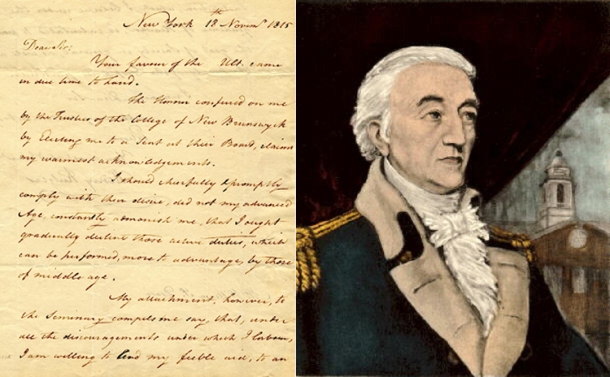 New York 18th Novemr 1815
Dear Sir;
Your favour of the Ult. came
in due time to hand.
The Honour conferred on me
by the Trustees of the College of New Brunswyck
by Electing me to a Seat at their Board, claims
my warmest acknowledgements.
I should chearfully & promptly
comply with their desire, did not my advanced
Age, constantly admonish me, that I ought
gradually decline those active duties, which
can be performed, more to advantage, by those
of middle age.
My attachment, however, to
the Seminary compels me say, that, under
all the discouragements under which I labour,
I am willing to lend my feeble aid, to an